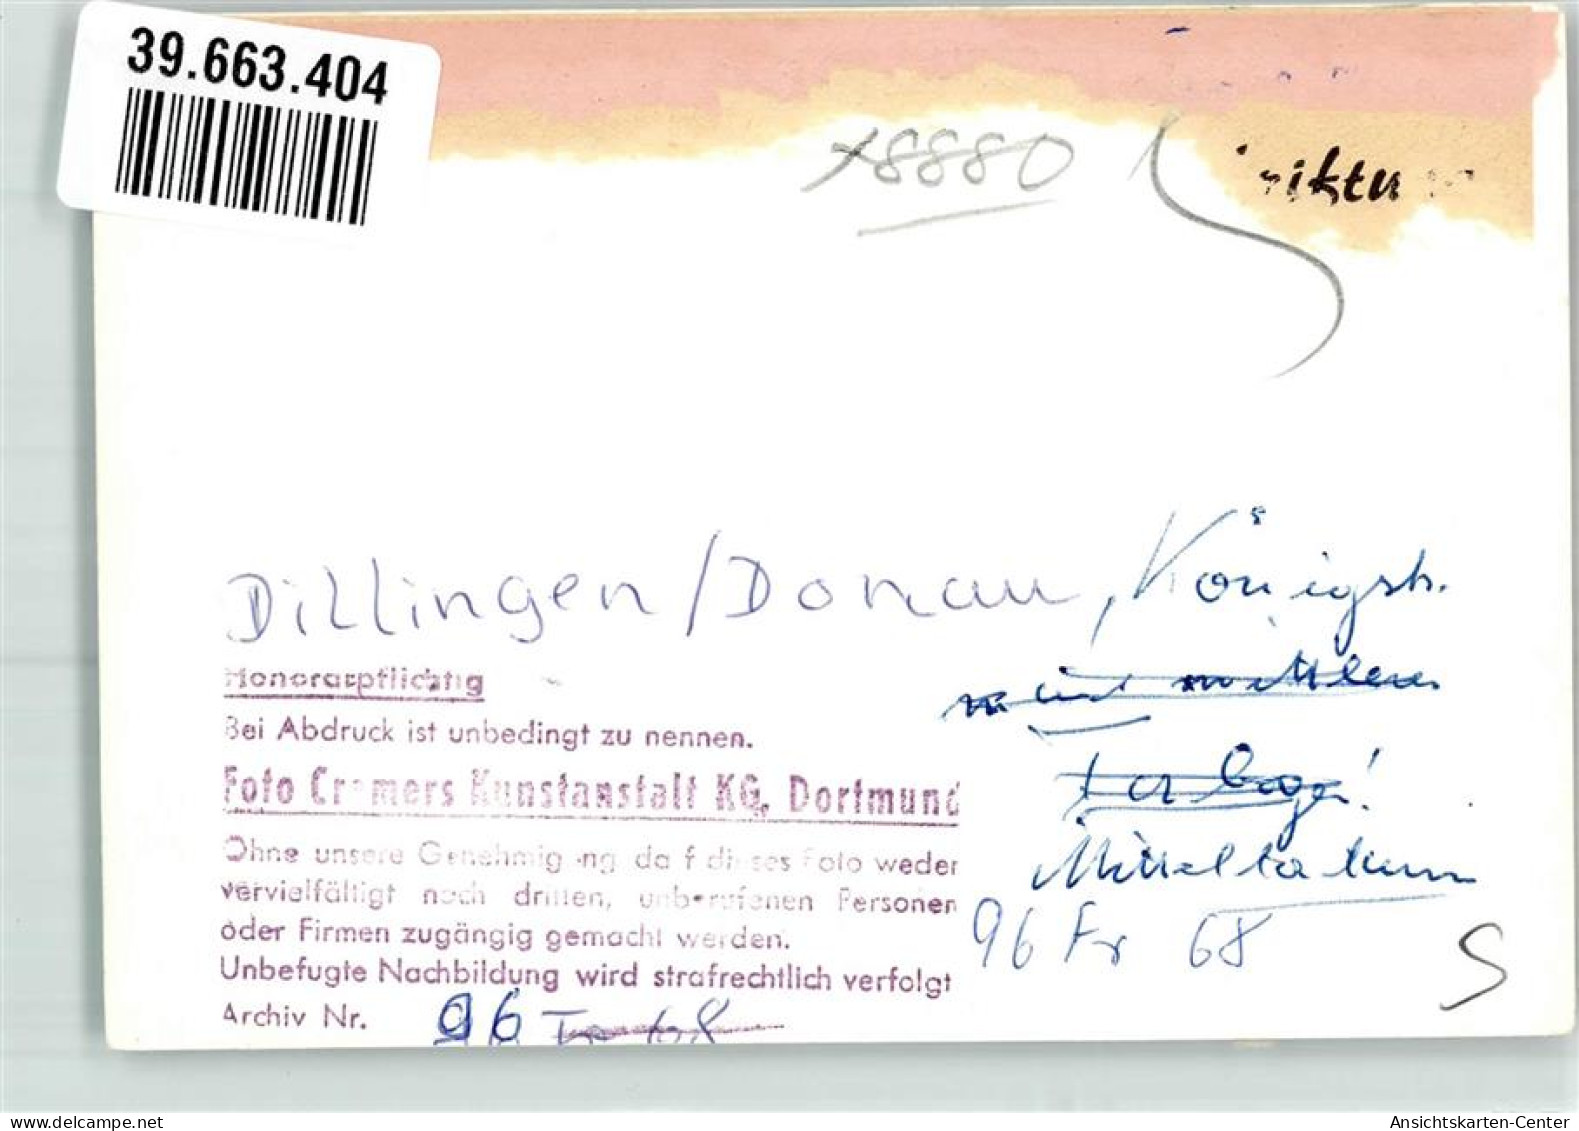 39.663.404
x8880
iktu
Dillingen/Donau, Königsh.
Honorarpflichtig
Bei Abdruck ist unbedingt zu nennen.
Foto Cramers Kunstanstalt KG, Dortmund
Ohne unsere Genehmigung darf dieses Foto weder
vervielfältigt noch dritten, unberufenen Personen
oder Firmen zugängig gemacht werden.
Unbefugte Nachbildung wird strafrechtlich verfolgt
Archiv Nr. 96 Fr 68
mittleres
96 Fr 68
S
delcampe.net
Ansichtskarten-Center